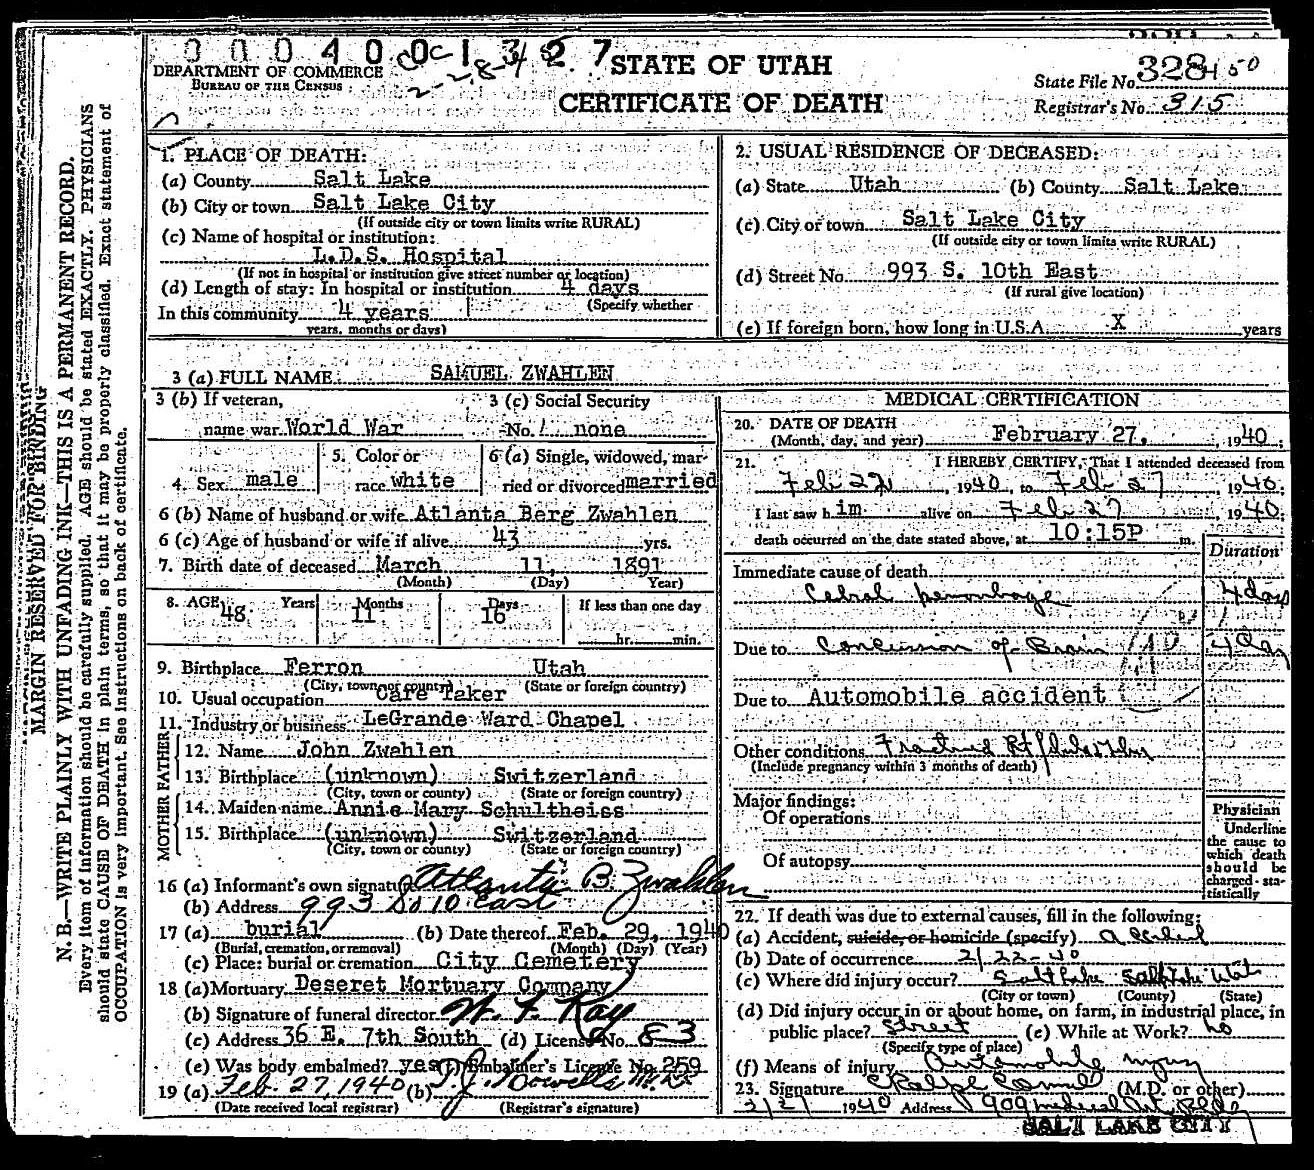 0 0 0 4 0 0 1 3 2 7
DEPARTMENT OF COMMERCE
BUREAU OF THE CENSUS
STATE OF UTAH
CERTIFICATE OF DEATH
State File No. 328
Registrar's No. 315
MARGIN RESERVED FOR BINDING
N. B.—WRITE PLAINLY WITH UNFADING INK—THIS IS A PERMANENT RECORD.
Every item of information should be carefully supplied. AGE should be stated EXACTLY. PHYSICIANS
should state CAUSE OF DEATH in plain terms, so that it may be properly classified. Exact statement of
OCCUPATION is very important. See instructions on back of certificate.
1. PLACE OF DEATH:
(a) County Salt Lake
(b) City or town Salt Lake City
(If outside city or town limits write RURAL)
(c) Name of hospital or institution:
L.D.S. Hospital
(If not in hospital or institution give street number or location)
(d) Length of stay: In hospital or institution 4 days
(Specify whether
In this community 4 years
years, months or days)
2. USUAL RESIDENCE OF DECEASED:
(a) State Utah (b) County Salt Lake
(c) City or town Salt Lake City
(If outside city or town limits write RURAL)
(d) Street No. 993 S. 10th East
(If rural give location)
(e) If foreign born, how long in U.S.A. X years
3 (a) FULL NAME SAMUEL ZWAHLEN
3 (b) If veteran,
name war World War
3 (c) Social Security
No. none
4. Sex male
5. Color or
race white
6 (a) Single, widowed, mar-
ried or divorced married
6 (b) Name of husband or wife Atlanta Berg Zwahlen
6 (c) Age of husband or wife if alive 43 yrs.
7. Birth date of deceased March 11, 1891
(Month) (Day) Year)
8. AGE 48 Years 11 Months 16 Days If less than one day
hr. min.
9. Birthplace Ferron Utah
(City, town or county) (State or foreign country)
10. Usual occupation Care Taker
11. Industry or business LeGrande Ward Chapel
FATHER
12. Name John Zwahlen
13. Birthplace (unknown) Switzerland
(City, town or county) (State or foreign country)
MOTHER
14. Maiden name Annie Mary Schultheiss
15. Birthplace (unknown) Switzerland
(City, town or county) (State or foreign country)
16 (a) Informant's own signature Atlanta B. Zwahlen
(b) Address 993 So 10 East
17 (a) burial (b) Date thereof Feb. 29, 1940
(Burial, cremation, or removal) (Month) (Day) (Year)
(c) Place: burial or cremation City Cemetery
18 (a) Mortuary Deseret Mortuary Company
(b) Signature of funeral director W. F. Kay
(c) Address 36 E. 7th South (d) License No. 83
(e) Was body embalmed? yes (f) Embalmer's License No. 259
19 (a) Feb. 27, 1940 (b) T. J. Howells
(Date received local registrar) (Registrar's signature)
MEDICAL CERTIFICATION
20. DATE OF DEATH
(Month, day, and year) February 27, 1940.
21. I HEREBY CERTIFY, That I attended deceased from
Feb 22, 1940, to Feb 27, 1940.
I last saw him alive on Feb 27 1940.
death occurred on the date stated above, at 10:15P m.
Duration
Immediate cause of death
Cebral hemorhage 4 days
Due to Concussion of Brain 4 Day
Due to Automobile accident
Other conditions Fractured Rt
(Include pregnancy within 3 months of death)
Major findings:
Of operations
Of autopsy
Physician
Underline
the cause to
which death
should be
charged sta-
tistically
22. If death was due to external causes, fill in the following:
(a) Accident, suicide, or homicide (specify) accident
(b) Date of occurrence 2/22-40
(c) Where did injury occur? Salt Lake Salt Lake Utah
(City or town) (County) (State)
(d) Did injury occur in or about home, on farm, in industrial place, in
public place? Street (e) While at Work? no
(Specify type of place)
(f) Means of injury Automobile injury
23. Signature (M.D. or other)
1940 Address 909 Medical Art Bldg
SALT LAKE CITY